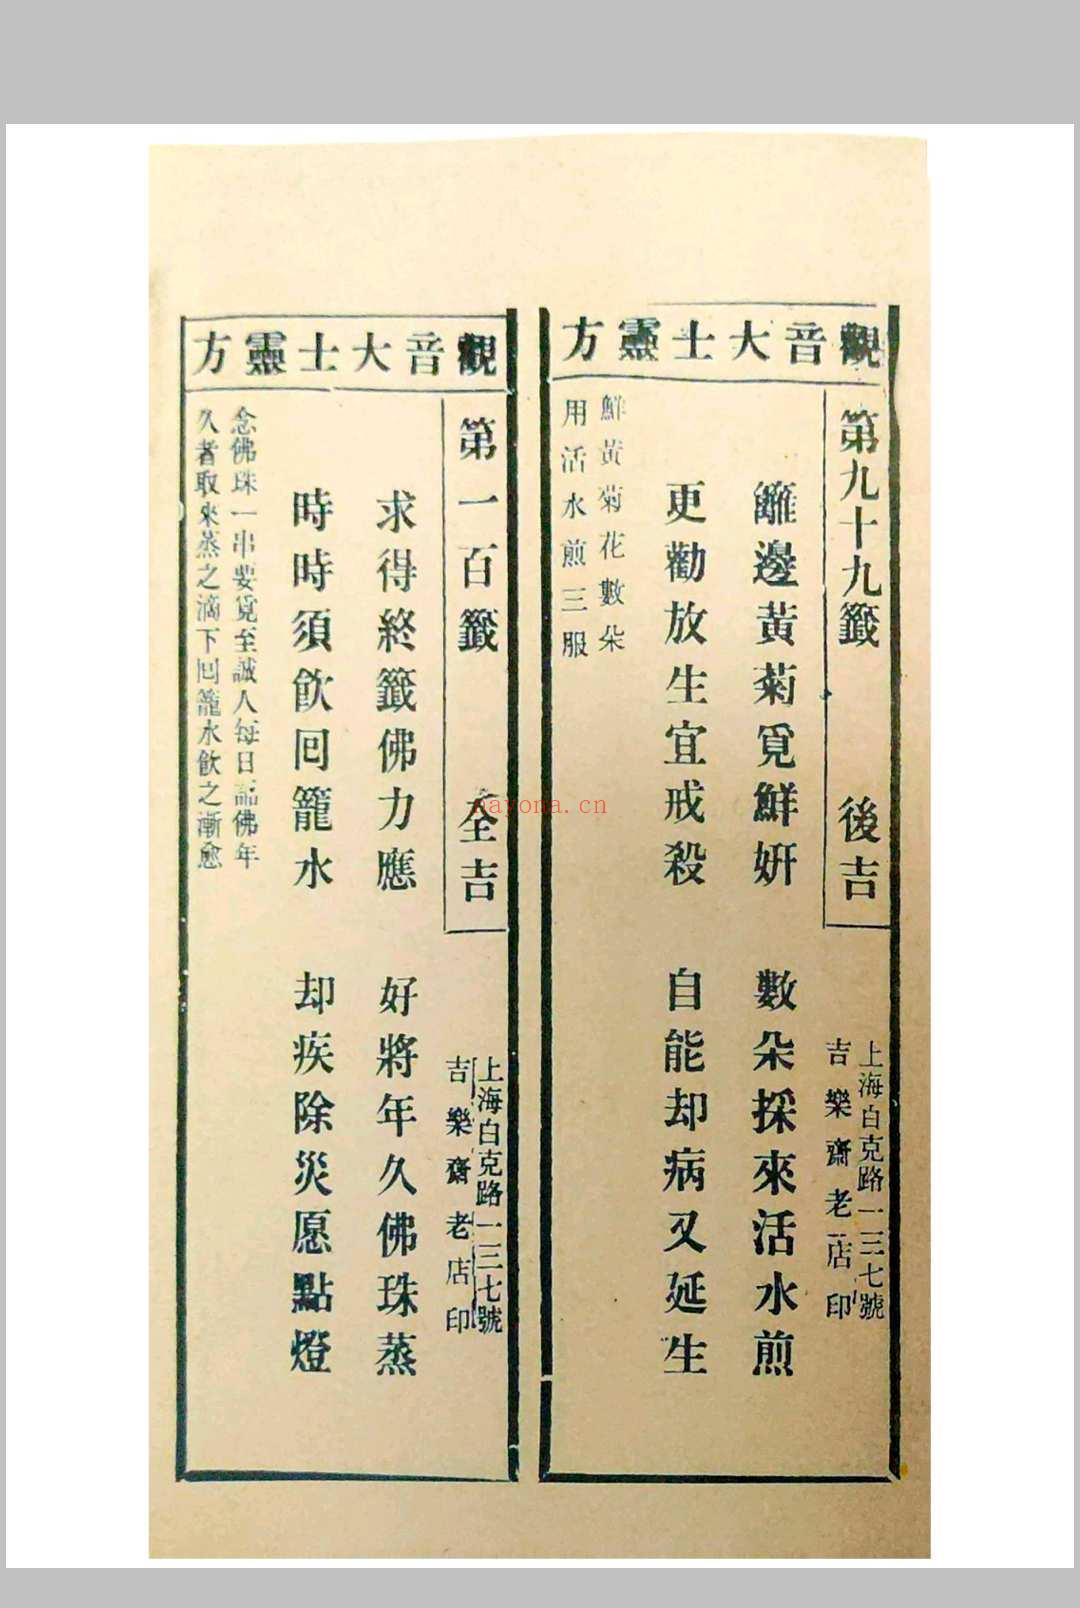 觀音大士靈方
第九十九籤 後吉
上海白克路一三七號
吉樂齋老店印
籬邊黃菊覓鮮妍 數朵採來活水煎
更勸放生宜戒殺 自能却病又延生
鮮黃菊花數朵
用活水煎三服
觀音大士靈方
第一百籤 全吉
上海白克路一三七號
吉樂齋老店印
求得終籤佛力應 好將年久佛珠蒸
時時須飲回籠水 却疾除災愿點燈
念佛珠一串要覓至誠人每日誦佛年
久者取來蒸之滴下回籠水飲之漸愈
nayona.cn